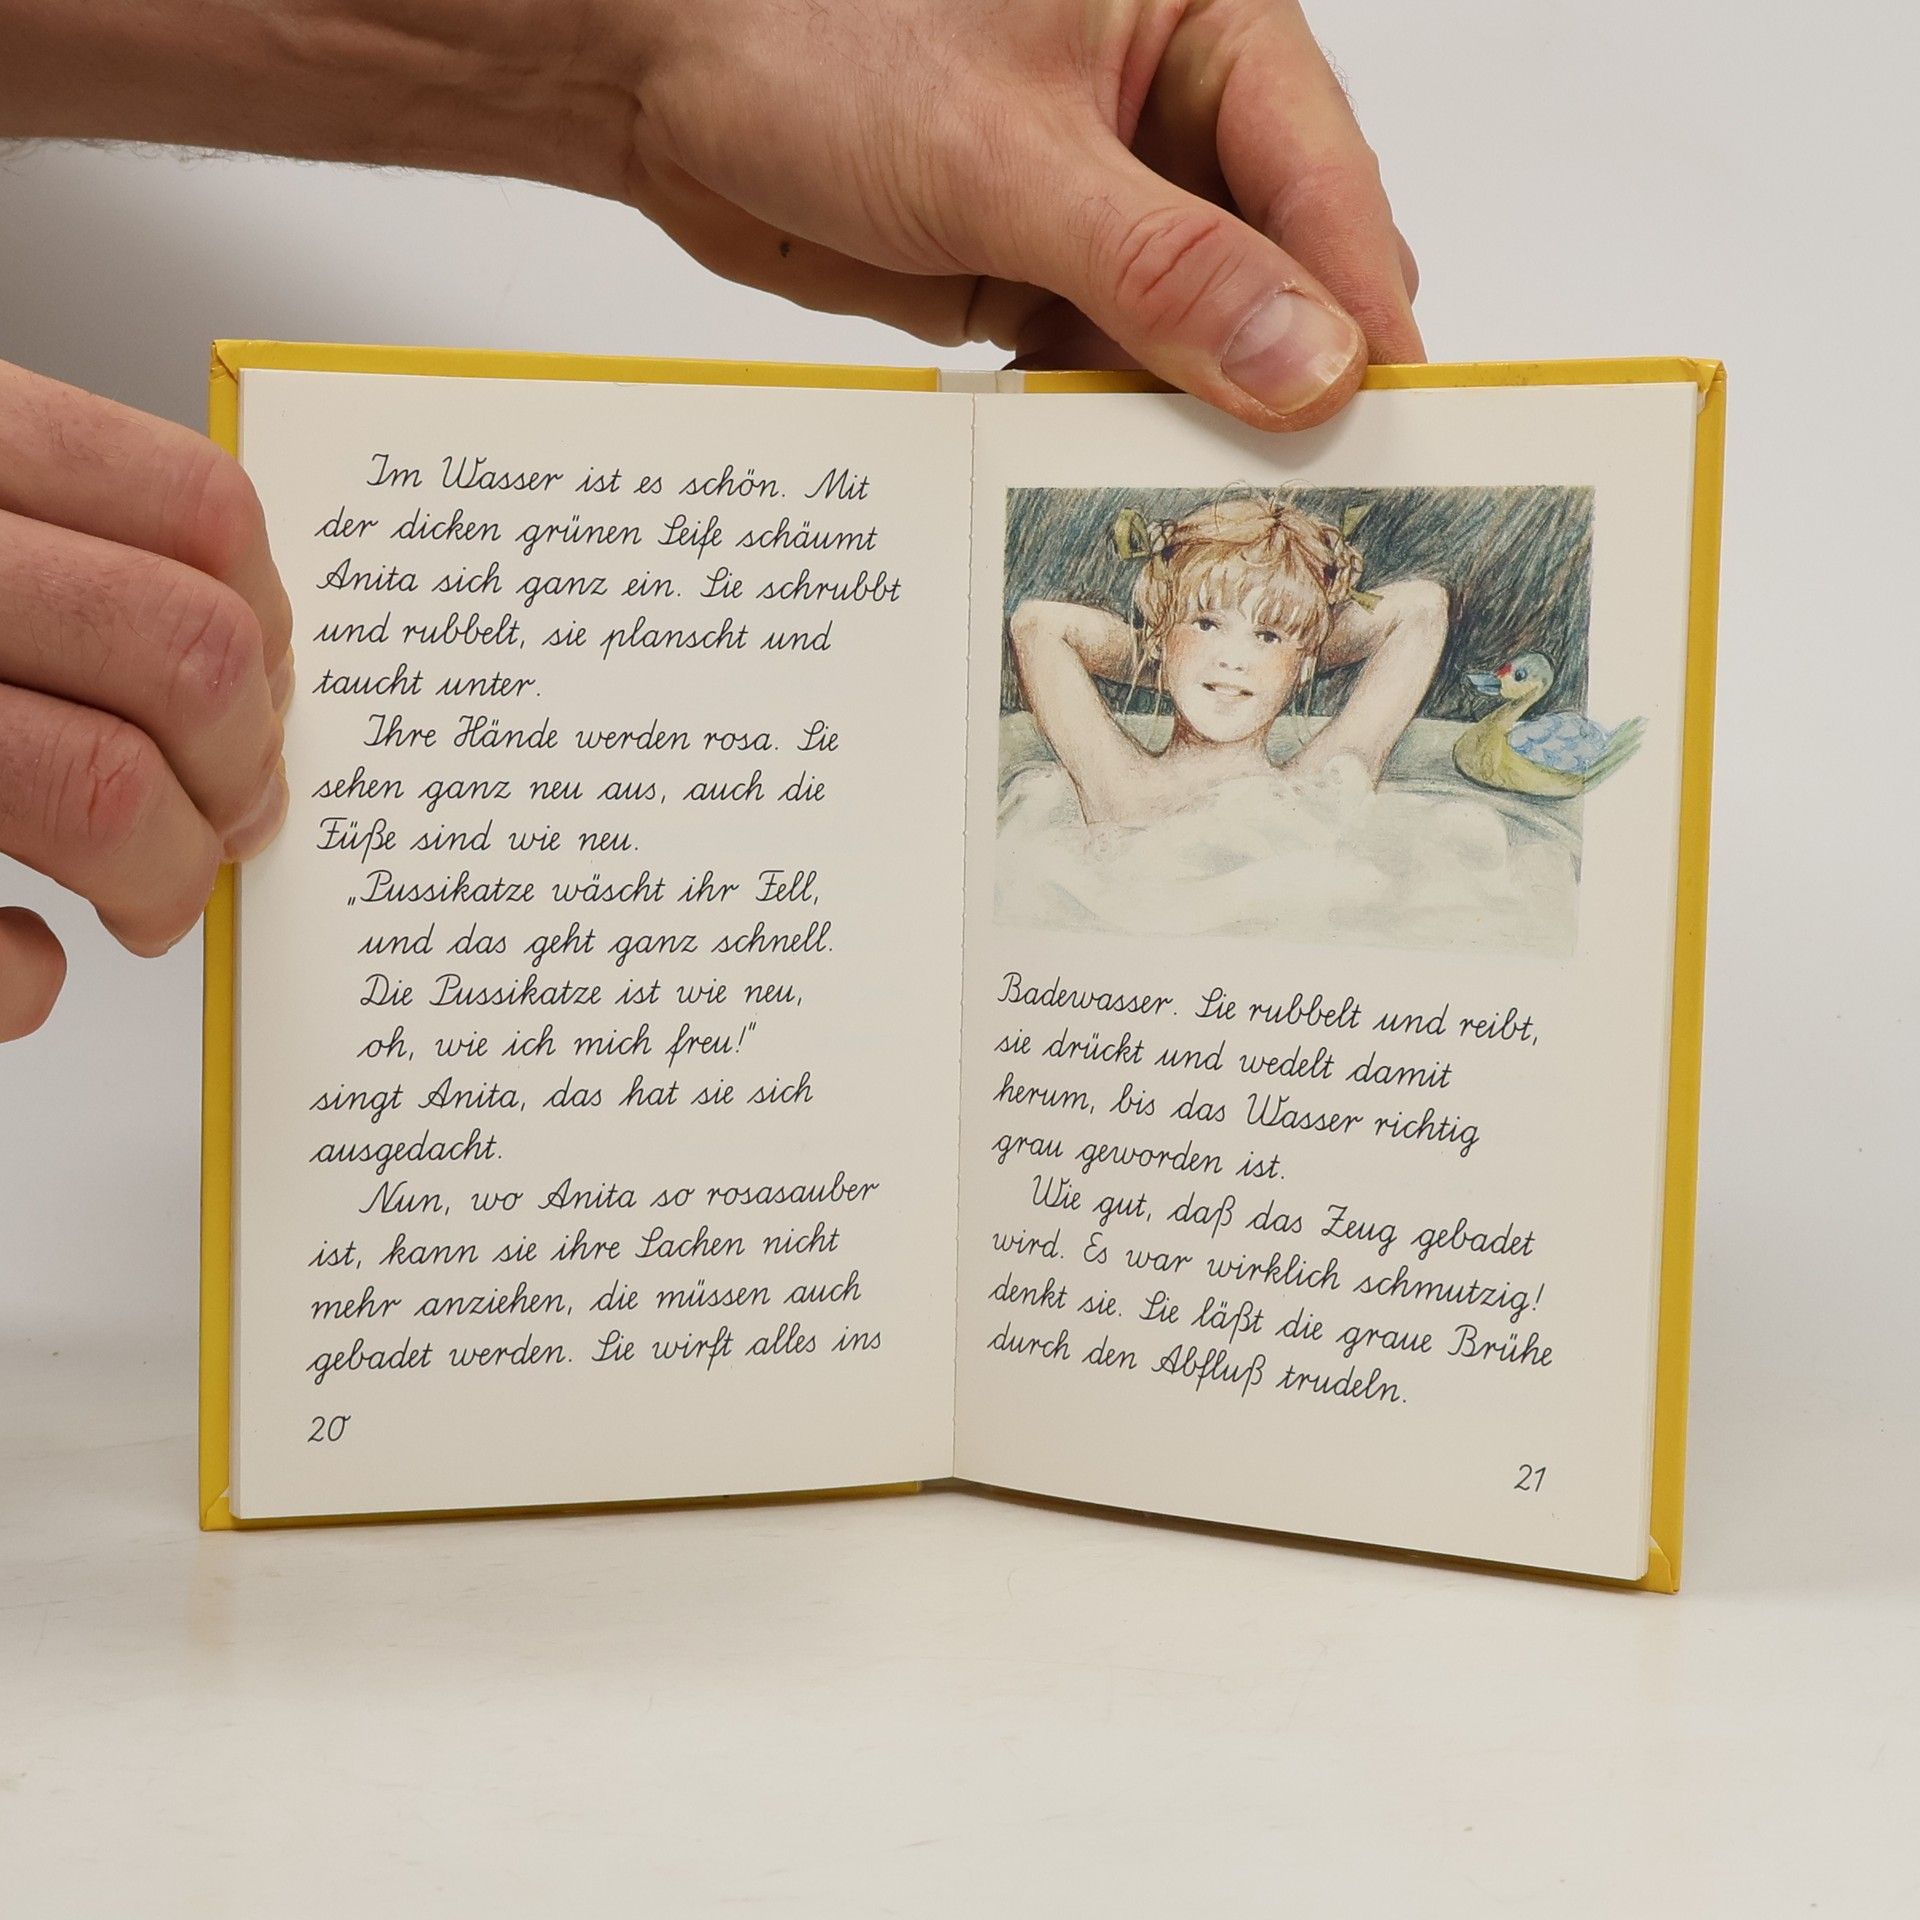 Im Wasser ist es schön. Mit
der dicken grünen Seife schäumt
Anita sich ganz ein. Sie schrubbt
und rubbelt, sie planscht und
taucht unter.
Ihre Hände werden rosa. Sie
sehen ganz neu aus, auch die
Füße sind wie neu.
„Pussikatze wäscht ihr Fell,
und das geht ganz schnell.
Die Pussikatze ist wie neu,
oh, wie ich mich freu!“
singt Anita, das hat sie sich
ausgedacht.
Nun, wo Anita so rosasauber
ist, kann sie ihre Sachen nicht
mehr anziehen, die müssen auch
gebadet werden. Sie wirft alles ins
20
Badewasser. Sie rubbelt und reibt,
sie drückt und wedelt damit
herum, bis das Wasser richtig
grau geworden ist.
Wie gut, daß das Zeug gebadet
wird. Es war wirklich schmutzig!
denkt sie. Sie läßt die graue Brühe
durch den Abfluß trudeln.
21